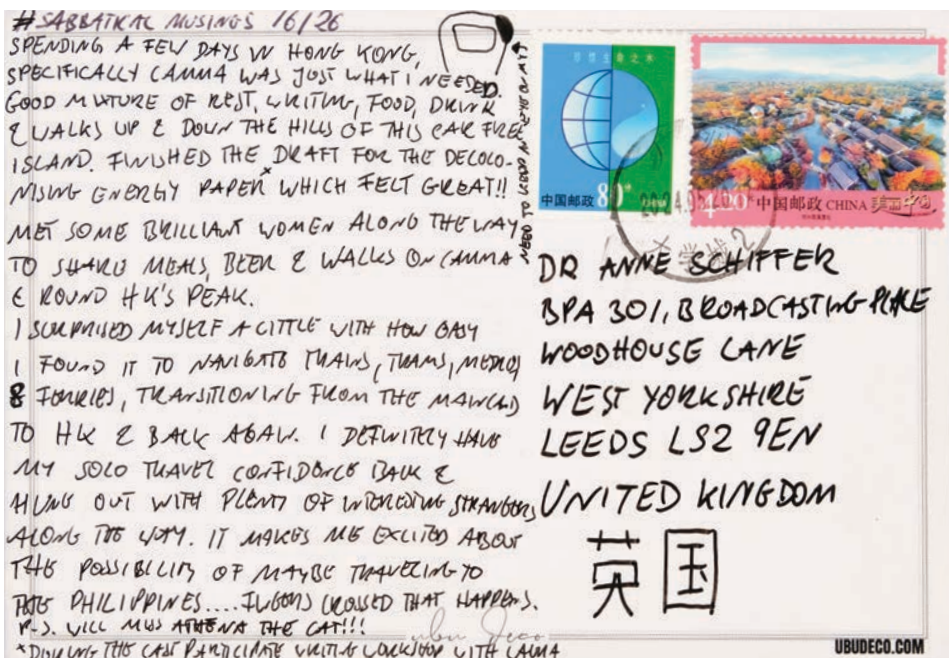 #SABBATICAL MUSINGS 16/26
SPENDING A FEW DAYS IN HONG KONG,
SPECIFICALLY LAMMA WAS JUST WHAT I NEEDED.
GOOD MIXTURE OF REST, WRITING, FOOD, DRINK
& WALKS UP & DOWN THE HILLS OF THIS CAR FREE
ISLAND. FINISHED THE DRAFT FOR THE DECOLO-
NISING ENERGY PAPER* WHICH FELT GREAT!!
MET SOME BRILLIANT WOMEN ALONG THE WAY
TO SHARE MEALS, BEER & WALKS ON LAMMA
& ROUND HK'S PEAK.
I SURPRISED MYSELF A LITTLE WITH HOW EASY
I FOUND IT TO NAVIGATE TRAINS, TRAMS, METROS
& FERRIES, TRANSITIONING FROM THE MAINLAND
TO HK & BACK AGAIN. I DEFINITELY HAVE
MY SOLO TRAVEL CONFIDENCE BACK &
HUNG OUT WITH PLENTY OF INTERESTING STRANGERS
ALONG THE WAY. IT MAKES ME EXCITED ABOUT
THE POSSIBILITY OF MAYBE TRAVELING TO
THE PHILIPPINES.... FINGERS CROSSED THAT HAPPENS.
P.S. WILL MISS ATHENA THE CAT!!!
*DURING THE LAST PARTICIPATE WRITING WORKSHOP WITH LAURA
NEED TO KEEP AN
ubu Deco
中国邮政 80分 CHINA
4.20元 中国邮政 CHINA 美丽中国
DR ANNE SCHIFFER
BPA 301, BROADCASTING PLACE
WOODHOUSE LANE
WEST YORKSHIRE
LEEDS LS2 9EN
UNITED KINGDOM
英国
UBUDECO.COM